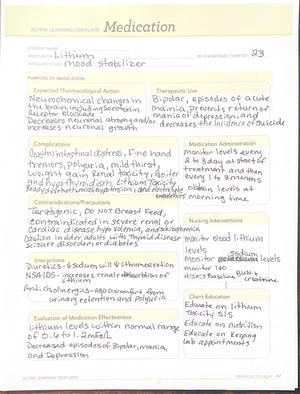 ACTIVE LEARNING TEMPLATE: Medication
STUDENT NAME
MEDICATION Lithium
REVIEW MODULE CHAPTER 23
CATEGORY CLASS mood stabilizer
PURPOSE OF MEDICATION
Expected Pharmacological Action
Neurochemical changes in
the brain, including serotonin
receptor blockade
Decreases neuronal atrophy and/or
increases neuronal growth
Therapeutic Use
Bipolar, episodes of acute
mania, prevents return of
mania or depression, and
decreases the incidence of suicide
Complications
Gastrointestinal distress, Fine hand
tremors, polyuria, mild thirst,
weight gain, Renal toxicity, Goiter
and hypothyroidism, Lithium Toxicity
hypotension, and electrolyte
imbalances
Medication Administration
monitor levels every
2 to 3 day at start of
treatment and then
every 1 to 3 months
obtain levels at
morning time
Contraindications/Precautions
Teratogenic, DO NOT Breast Feed,
contraindicated in severe renal or
cardiac disease, hypovolemia, and schizophrenia
Caution in older adults with thyroid disease
seizure disorder, or diabetes
Nursing Interventions
monitor blood lithium
levels
monitor sodium levels
monitor I&O
Assess Baseline BUN &
creatinine
Interactions
Diuretics - ↓ sodium will ↓ lithium excretion
NSAIDS - increases renal reabsorption of
lithium
Anticholinergics - abd discomfort from
urinary retention and polyuria
Client Education
Educate on Lithium
Toxicity S/S
Educate on nutrition
Educate on keeping
lab appointments
Evaluation of Medication Effectiveness
Lithium levels within normal range
of 0.6 to 1.2 mEq/L
Decreased episodes of Bipolar, mania,
and Depression
ACTIVE LEARNING TEMPLATES